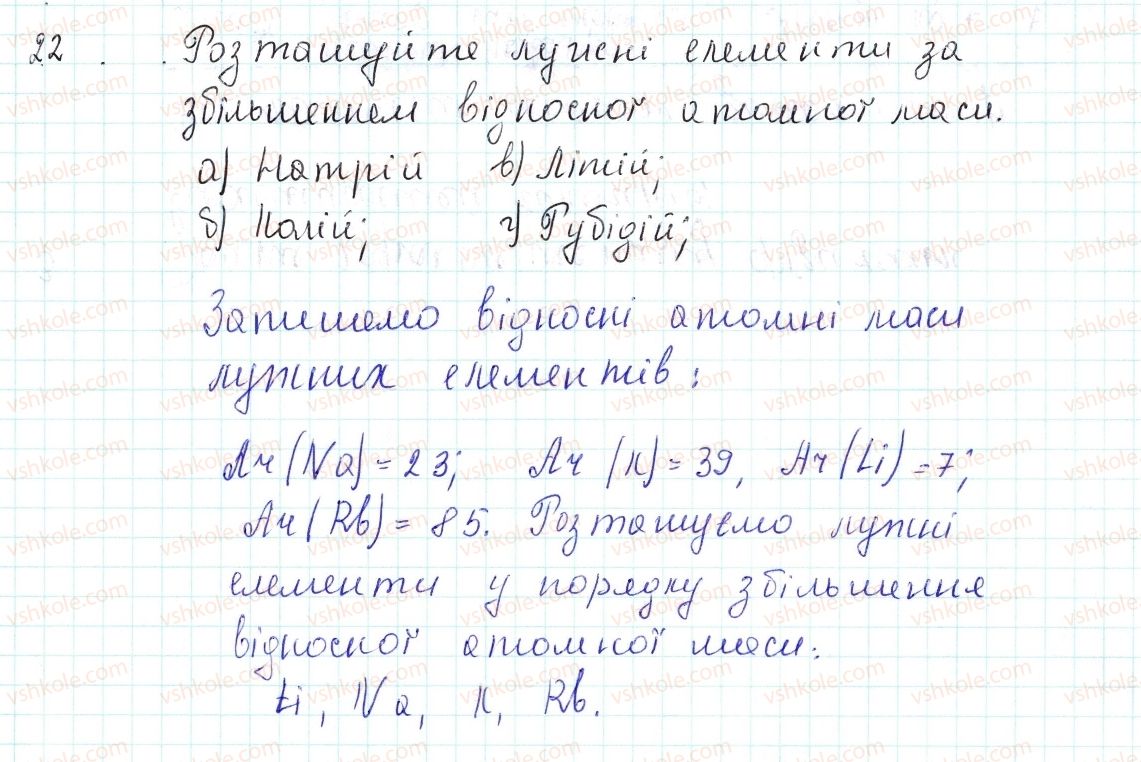 22 . . Розташуйте лужні елементи за
збільшенням відносної атомної маси.
а) Натрій в) Літій;
б) Калій; г) Рубідій;
Запишемо відносні атомні маси
лужних елементів:
Ar (Na) = 23; Ar (K) = 39, Ar (Li) = 7;
Ar (Rb) = 85. Розташуємо лужні
елементи у порядку збільшення
відносної атомної маси:
Li, Na, K, Rb.